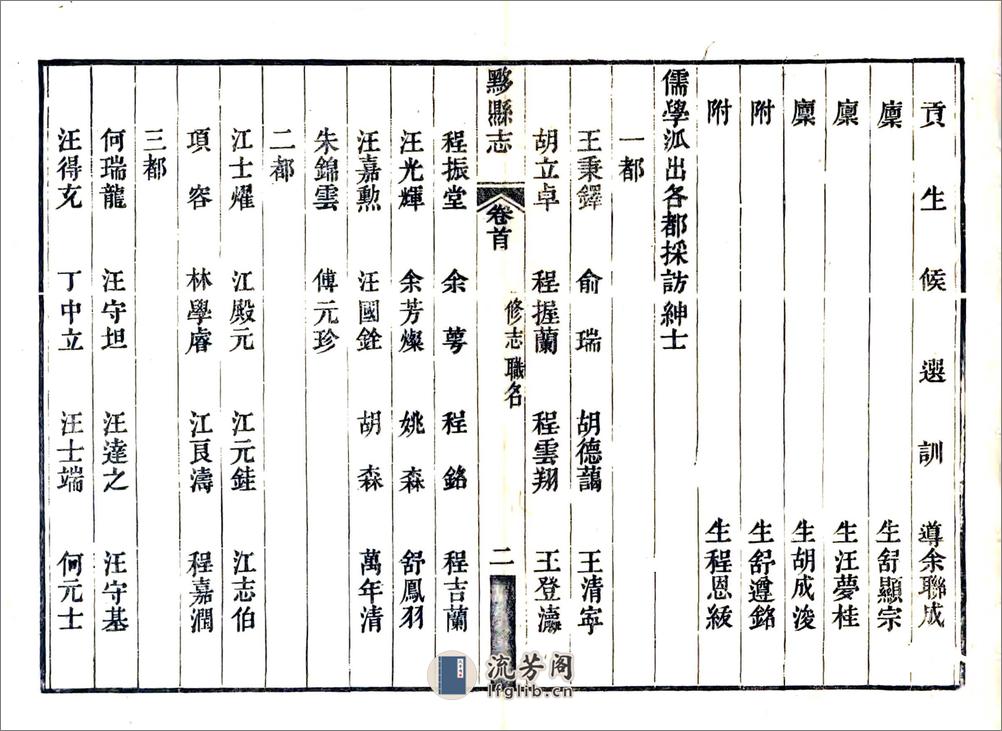 貢生候選訓導余聯成
廩生舒顯宗
廩生汪夢桂
廩生胡成浚
附生舒遵銘
附生程恩綬
儒學派出各都採訪紳士
一都
王秉鐸 俞瑞 胡德藹 王清寧
胡立卓 程握蘭 程雲翔 王登瀛
黟縣志 卷首 修志職名 二
程振堂 余蕚 程銘 程吉蘭
汪光輝 余芳燦 姚森 舒鳳羽
汪嘉勲 汪國銓 胡森 萬年清
朱錦雲 傅元珍
二都
江士燿 江殿元 江元鉒 江志伯
項容 林學睿 江良濤 程嘉潤
三都
何瑞龍 汪守坦 汪達之 汪守基
汪得充 丁中立 汪士端 何元士
流芳阁
lfglib.cn